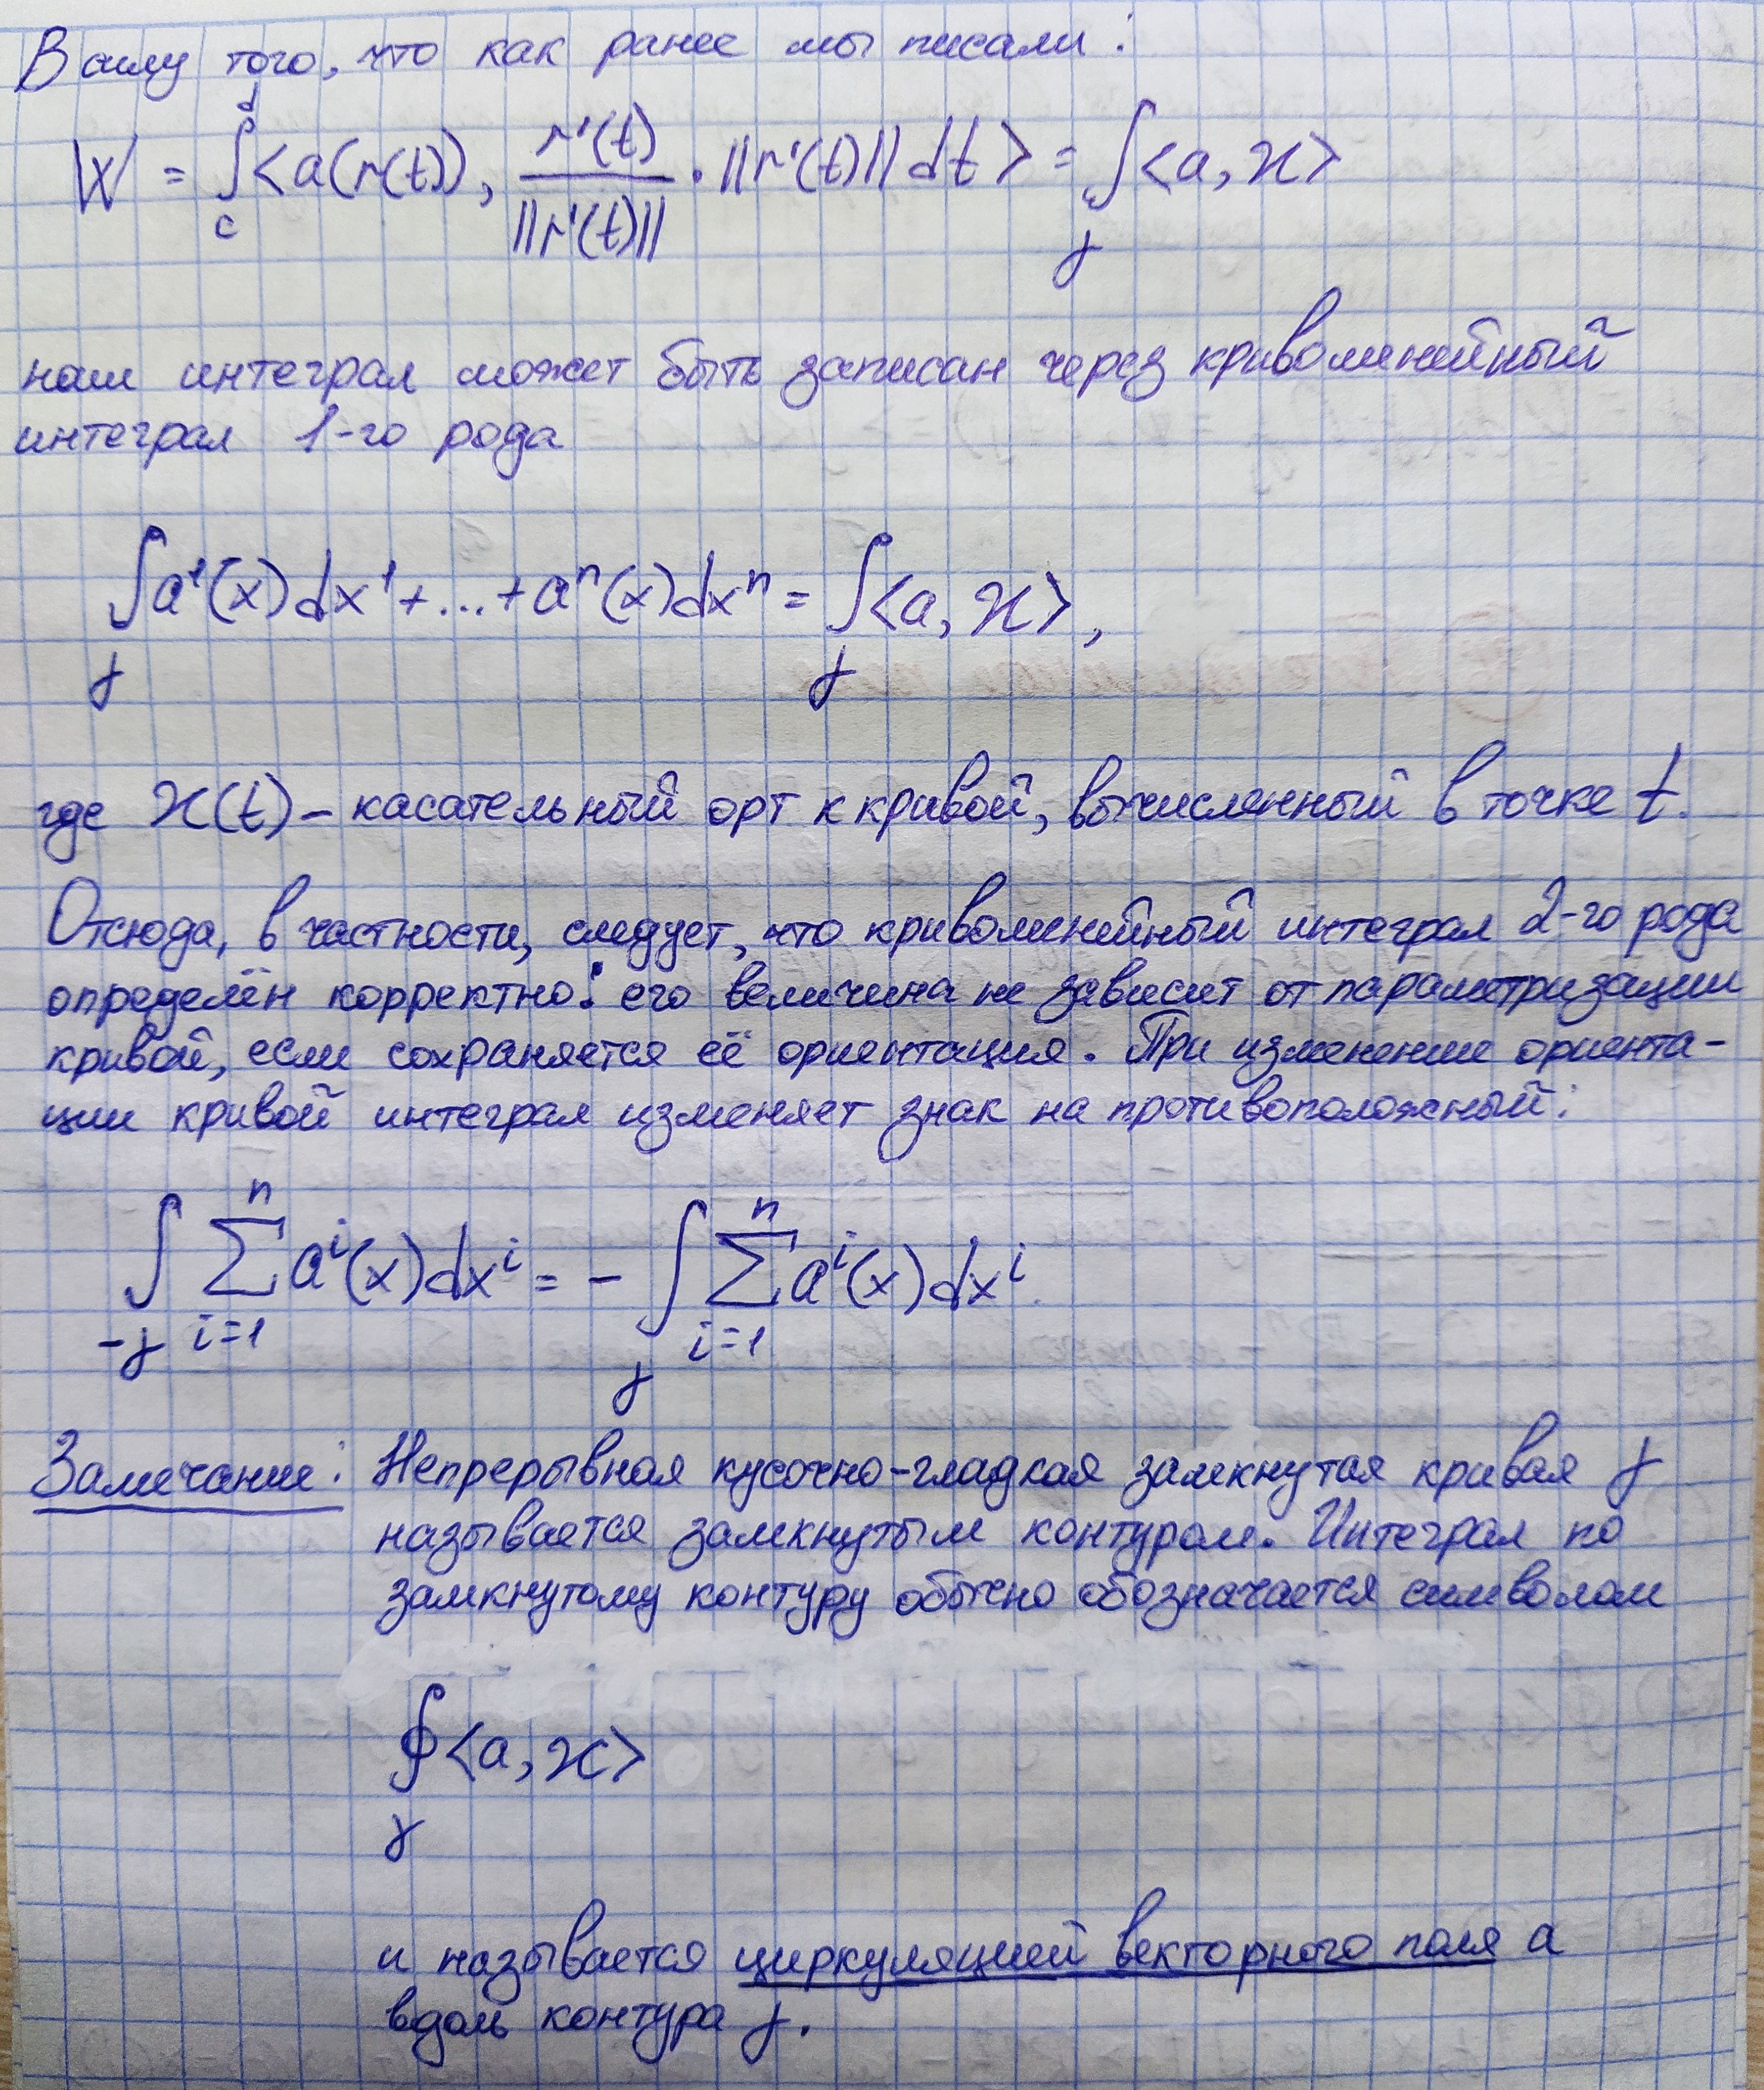 В силу того, что как ранее мы писали:
W = ∫_c^d <a(r(t)), r'(t)/||r'(t)|| · ||r'(t)|| dt> = ∫_γ <a, ϰ>
наш интеграл может быть записан через криволинейный
интеграл 1-го рода
∫_γ a¹(x)dx¹+...+aⁿ(x)dxⁿ = ∫_γ <a, ϰ>,
где ϰ(t) – касательный орт к кривой, вычисленный в точке t.
Отсюда, в частности, следует, что криволинейный интеграл 2-го рода
определён корректно: его величина не зависит от параметризации
кривой, если сохраняется её ориентация. При изменение ориента-
ции кривой интеграл изменяет знак на противоположный:
∫_{-γ} Σ_{i=1}^n aⁱ(x)dxⁱ = - ∫_γ Σ_{i=1}^n aⁱ(x)dxⁱ.
Замечание: Непрерывная кусочно-гладкая замкнутая кривая γ
называется замкнутым контуром. Интеграл по
замкнутому контуру обычно обозначается символом
∮_γ <a, ϰ>
и называется циркуляцией векторного поля a
вдоль контура γ.